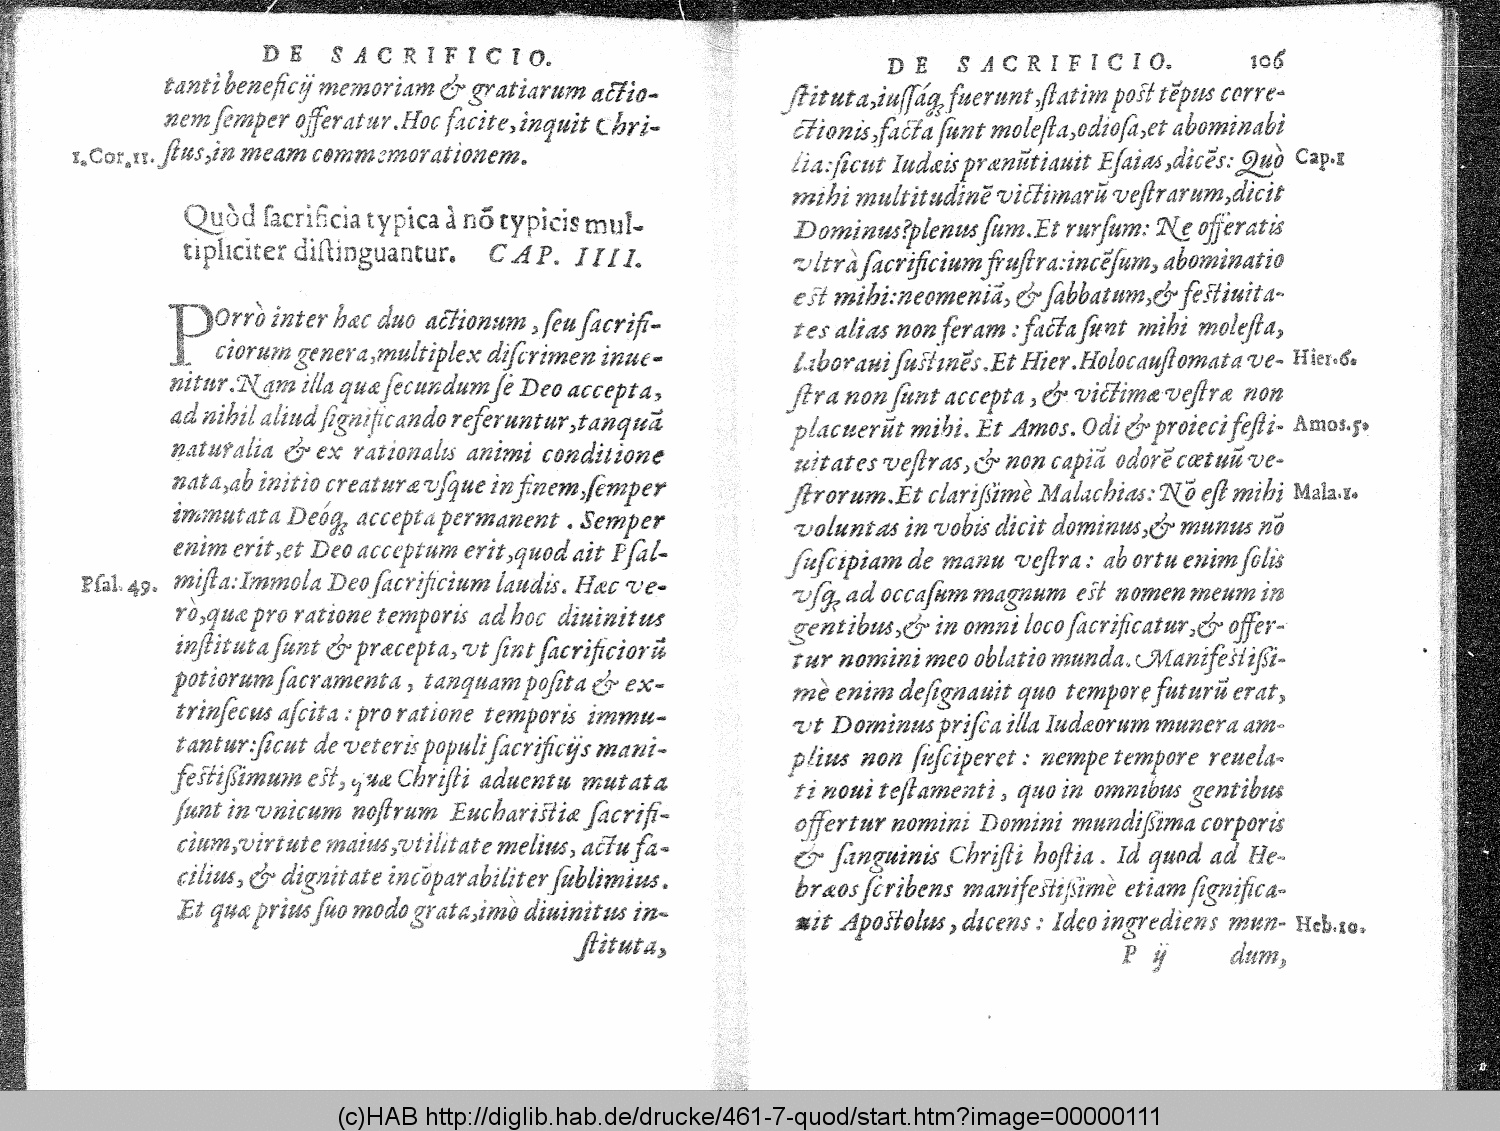 DE SACRIFICIO.
tanti beneficij memoriam & gratiarum actio-
nem ſemper offeratur. Hoc facite, inquit Chri-
1. Cor. 11. ſtus, in meam commemorationem.
Quòd ſacrificia typica à nõ typicis mul-
tipliciter diſtinguantur. CAP. IIII.
POrrò inter hæc duo actionum, ſeu ſacrifi-
ciorum genera, multiplex diſcrimen inue-
nitur. Nam illa quæ ſecundum ſe Deo accepta,
ad nihil aliud ſignificando referuntur, tanquã
naturalia & ex rationalis animi conditione
nata, ab initio creaturæ vſque in finem, ſemper
immutata Deóq; accepta permanent. Semper
enim erit, et Deo acceptum erit, quod ait Pſal-
Pſal. 49. miſta: Immola Deo ſacrificium laudis. Hæc ve-
rò, quæ pro ratione temporis ad hoc diuinitus
inſtituta ſunt & præcepta, vt ſint ſacrificiorũ
potiorum ſacramenta, tanquam poſita & ex-
trinſecus aſcita: pro ratione temporis immu-
tantur: ſicut de veteris populi ſacrificijs mani-
feſtiſſimum eſt, quæ Chriſti aduentu mutata
ſunt in vnicum noſtrum Euchariſtiæ ſacrifi-
cium, virtute maius, vtilitate melius, actu fa-
cilius, & dignitate incõparabiliter ſublimius.
Et quæ prius ſuo modo grata, imò diuinitus in-
ſtituta,
DE SACRIFICIO. 106
ſtituta, iuſſáq; fuerunt, ſtatim poſt tẽpus corre-
ctionis, facta ſunt moleſta, odioſa, et abominabi
lia: ſicut Iudæis prænũtiauit Eſaias, dicẽs: Quò Cap. 1
mihi multitudinẽ victimarũ veſtrarum, dicit
Dominus? plenus ſum. Et rurſum: Ne offeratis
vltrà ſacrificium fruſtra: incẽſum, abominatio
eſt mihi: neomeniã, & ſabbatum, & feſtiuita-
tes alias non feram: facta ſunt mihi moleſta,
laboraui ſuſtinẽs. Et Hier. Holocauſtomata ve- Hier. 6.
ſtra non ſunt accepta, & victimæ veſtræ non
placuerũt mihi. Et Amos. Odi & proieci feſti- Amos. 5.
uitates veſtras, & non capiã odorẽ cœtuũ ve-
ſtrorum. Et clariſſimè Malachias: Nõ eſt mihi Mala. 1.
voluntas in vobis dicit dominus, & munus nõ
ſuſcipiam de manu veſtra: ab ortu enim ſolis
vſq; ad occaſum magnum eſt nomen meum in
gentibus, & in omni loco ſacrificatur, & offer-
tur nomini meo oblatio munda. Manifeſtiſſi-
mè enim deſignauit quo tempore futurũ erat,
vt Dominus priſca illa Iudæorum munera am-
plius non ſuſciperet: nempe tempore reuela-
ti noui teſtamenti, quo in omnibus gentibus
offertur nomini Domini mundiſſima corporis
& ſanguinis Chriſti hoſtia. Id quod ad He-
bræos ſcribens manifeſtiſſimè etiam ſignifica-
uit Apoſtolus, dicens: Ideo ingrediens mun- Heb. 10.
P ij dum,
(c)HAB http://diglib.hab.de/drucke/461-7-quod/start.htm?image=00000111